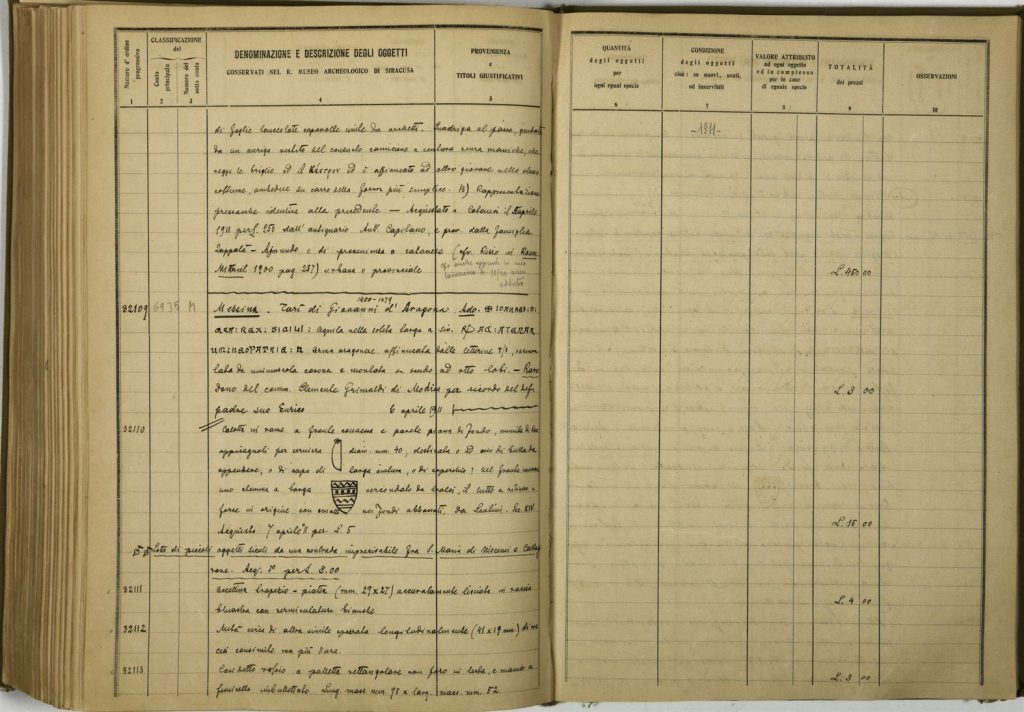 Numero d'ordine progressivo
CLASSIFICAZIONE
del
Conto principale
Numero del sotto conto
DENOMINAZIONE E DESCRIZIONE DEGLI OGGETTI
CONSERVATI NEL R. MUSEO ARCHEOLOGICO DI SIRACUSA
PROVENIENZA
e
TITOLI GIUSTIFICATIVI
1 2 3 4 5
di foglie lanceolate capovolte unite da archetti. Quadriga al passo, guidata
da un auriga vestito del consueto camicione a cintura senza maniche, che
regge le briglie ed il κέντρον ed è affiancato ad altro giovane nello stesso
costume, ambedue su carro della forma più semplice. B) Rappresentazione
pressoché identica alla precedente — Acquistato a Catania il aprile
1911 per £. 250 dall' antiquario Ant. Capitano, e prov. dalla famiglia
Zappalà - e di provenienza o catanese (cfr. Rizzo in Röm.
Mitteil 1900 pag. 257) urbana o provinciale
cfr anche appunti in mio
taccuino
32109 6935 M Messina. Tarì di Giovanni d'Aragona
1458-1479
aquila nella solita targa a sin.
arma aragonese affiancata dalle letterine T/I, sormon
tata da minuscola corona e montata su scudo ad otto lobi. — Raro
Dono del comm. Clemente Grimaldi di Modica per ricordo del def.
padre suo Enrico 6 aprile 1911
32110 Calotta in rame a fronte convessa e parete piana di fondo, munita di due
appiccagnoli per cerniera diam. mm. 40, destinata o ad uso di bulla da
appendere, o di capo di larga cintura, o di coperchio; nel fronte convesso
uno stemma a targa circondato da il tutto a rilievo e
forse in origine con smalti nei fondi abbassati. Da Lentini. Sec. XIV
Acquisto 7 aprile 11 per £. 5
Lotto di piccoli oggetti sicoli da una contrada imprecisabile fra S. Maria di Niscemi e Caltag
rone. Acq. per £. 8.00
32111 Accettina trapezio - piatta (mm. 29 x 27) accuratamente lisciata in roccia
bluastra con vermicolature bianche
32112 Metà circa di altra simile spezzata longitudinalmente (41 x 19 mm.) di roc
cia consimile ma più dura.
32113 Cosidetto rasoio a paletta rettangolare con foro in testa, e manico a
forcicella imbullettato Lung. mass. mm. 98 x larg. mass. mm. 52
QUANTITÀ
degli oggetti
per
ogni egual specie
CONDIZIONE
degli oggetti
cioè: se nuovi, usati,
od inservibili
VALORE ATTRIBUITO
ad ogni oggetto
ed in complesso
per le cose
di eguale specie
TOTALITÀ
dei prezzi
OSSERVAZIONI
6 7 8 9 10
-1911-
L. 450 00
L. 3 00
L. 15 00
L. 4 00
L. 3 00